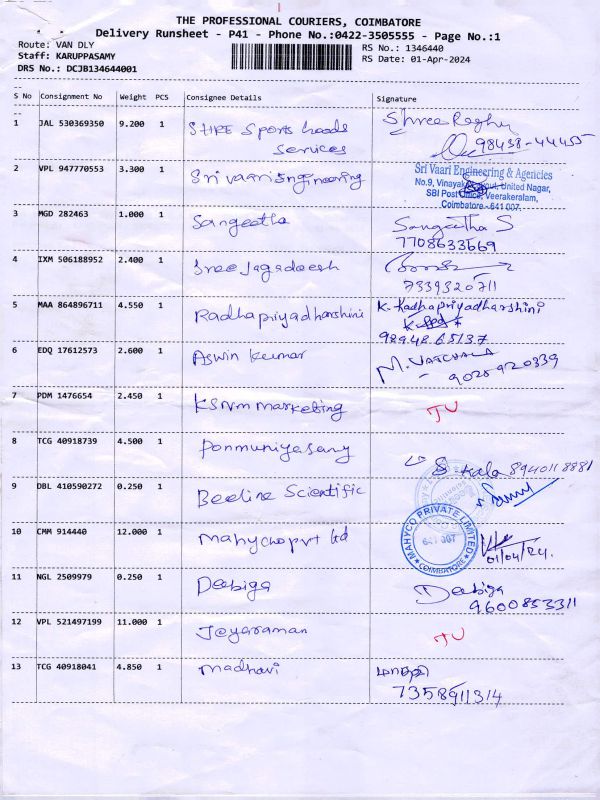 THE PROFESSIONAL COURIERS, COIMBATORE
Delivery Runsheet - P41 - Phone No.:0422-3505555 - Page No.:1
Route: VAN DLY
RS No.: 1346440
Staff: KARUPPASAMY
RS Date: 01-Apr-2024
DRS No.: DCJB134644001
S No Consignment No Weight PCS Consignee Details Signature
1 JAL 530369350 9.200 1 Sports Goods Shree Raghu
Services 98438-44455
2 VPL 947770553 3.300 1 Sri vaari Engineering Sri Vaari Engineering & Agencies
No.9, United Nagar,
SBI Post Office, Veerakeralam,
Coimbatore - 641 007.
3 MGD 282463 1.000 1 Sangeetha Sangeetha S
7708633669
4 IXM 506188952 2.400 1 Sree Jagadeesh
7339320711
5 MAA 864896711 4.550 1 Radhapriyadharshini K. Radhapriyadharshini
9894865137
6 EDQ 17612573 2.600 1 Aswin Kumar M.
9028920339
7 PDM 1476654 2.450 1 KSNM marketing TU
8 TCG 40918739 4.500 1 Ponmuniyasamy S. Kala 8940118881
9 DBL 410590272 0.250 1 Beeline Scientific
10 CMM 914440 12.000 1 Mahyco pvt ltd MAHYCO PRIVATE LIMITED
641 007
COIMBATORE
01/04/24.
11 NGL 2509979 0.250 1 Deebiga Deebiga
9600853311
12 VPL 521497199 11.000 1 Jeyaraman TU
13 TCG 40918041 4.850 1 Madhavi
7358911314